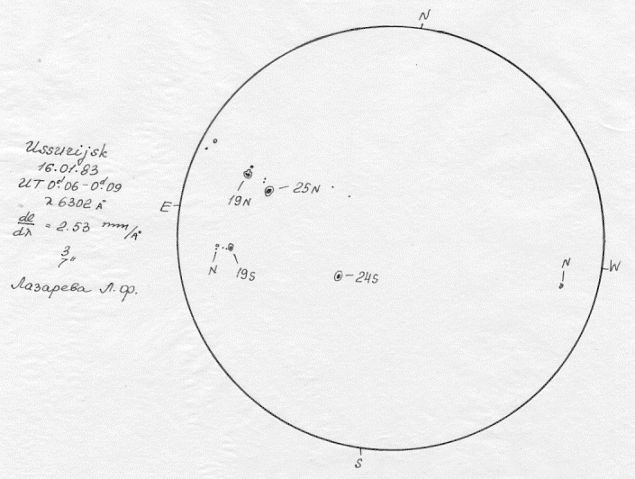 N
Ussurijsk
16.01.83
UT 0ᵈ.06-0ᵈ.09
λ 6302 Å
dl/dλ = 2.53 mm/Å
3
7"
Лазарева Л.Ф.
E
19N
25N
N
19S
24S
N
W
S